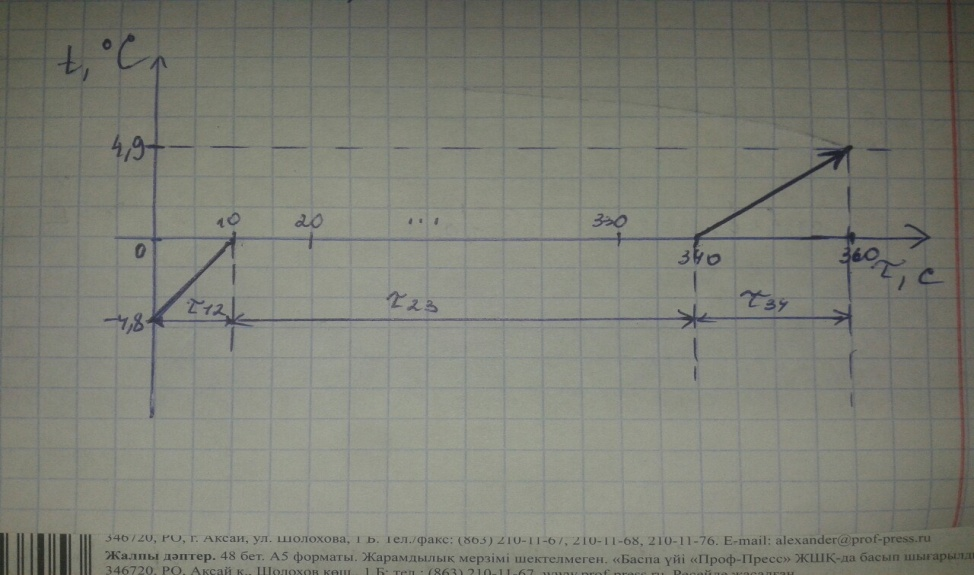 t, °C
4,9
10 20 ... 330
0
340 360 τ, c
τ12 τ23 τ34
-4,8
346720, РО, г. Аксай, ул. Шолохова, 1 Б. Тел./факс: (863) 210-11-67, 210-11-68, 210-11-76. E-mail: alexander@prof-press.ru
Жалпы дәптер. 48 бет. А5 форматы. Жарамдылық мерзімі шектелмеген. «Баспа үйі «Проф-Пресс» ЖШҚ-да басып шығарылд
346720, РО, Аксай қ., Шолохов көш., 1 Б; тел.: (863) 210-11-67, www.prof-press.ru. Ресейде жасалған